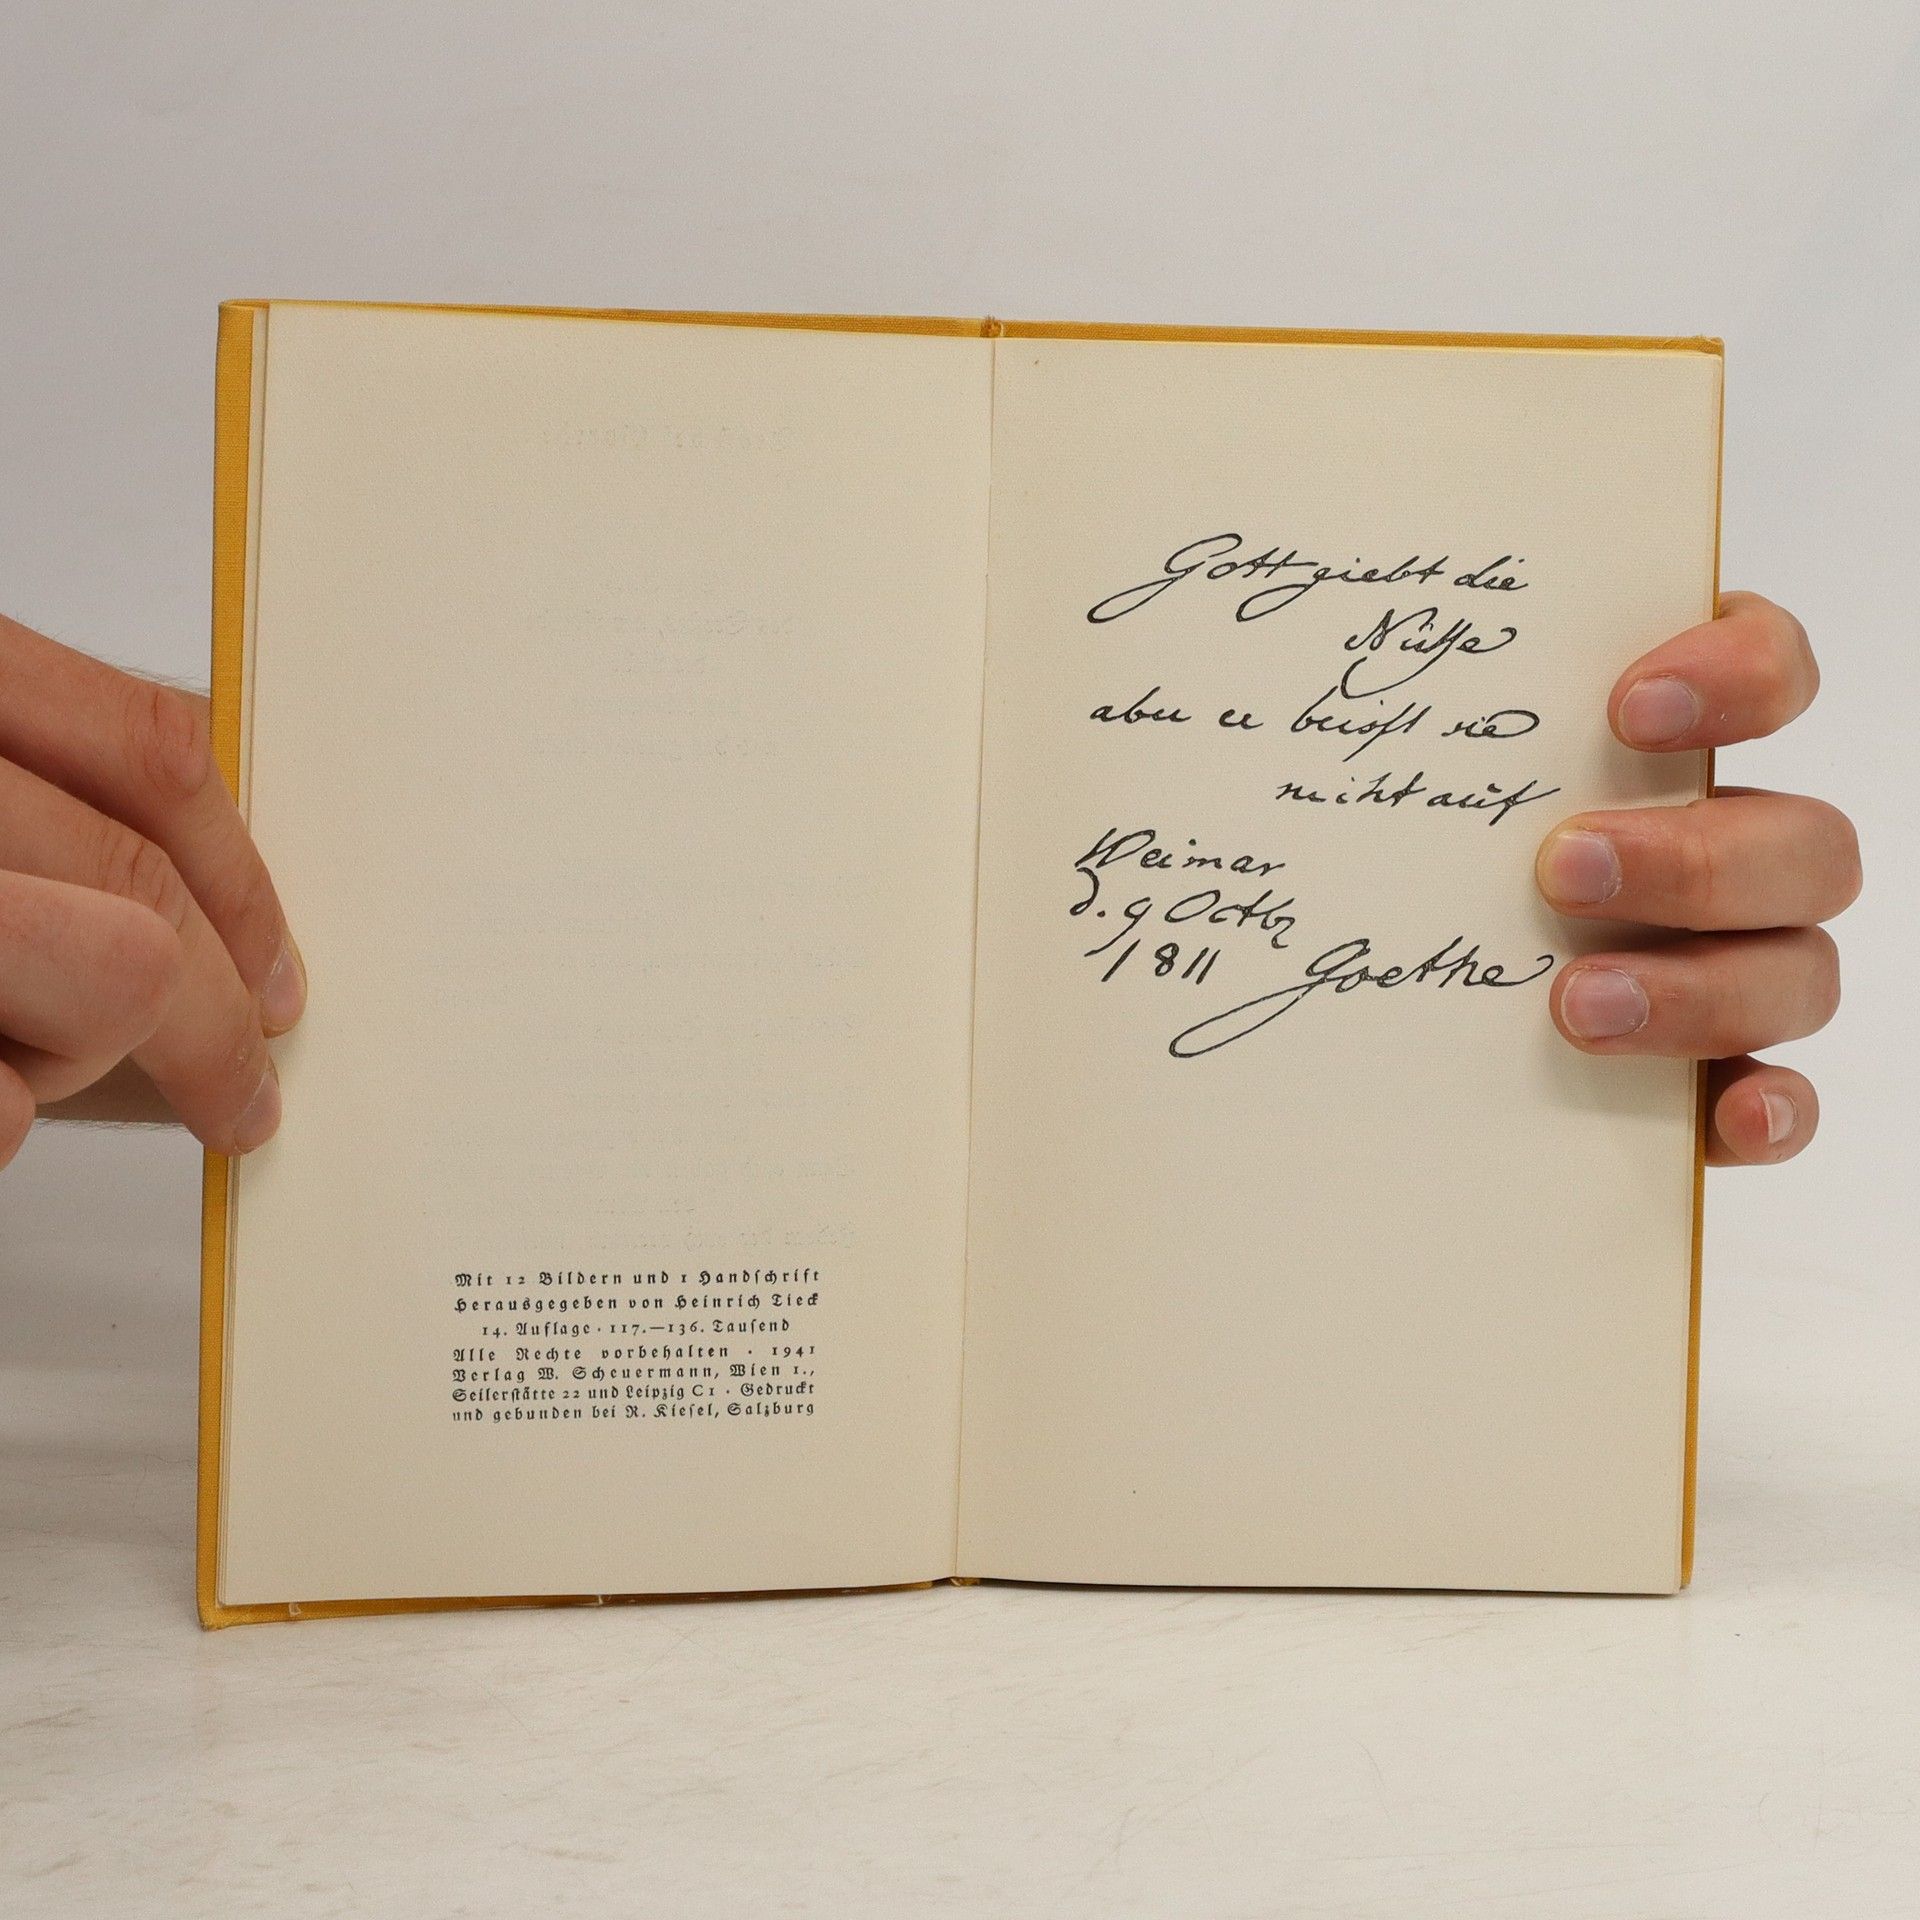 Mit 12 Bildern und 1 Handſchrift
Herausgegeben von Heinrich Tieck
14. Auflage · 117.—136. Tauſend
Alle Rechte vorbehalten · 1941
Verlag W. Scheuermann, Wien 1.,
Seilerſtätte 22 und Leipzig C1 · Gedruckt
und gebunden bei R. Kieſel, Salzburg
Gott giebt die
Nüſſe
aber er beiſst sie
nicht auf
Weimar
d. 9 Octbr
1811 Goethe